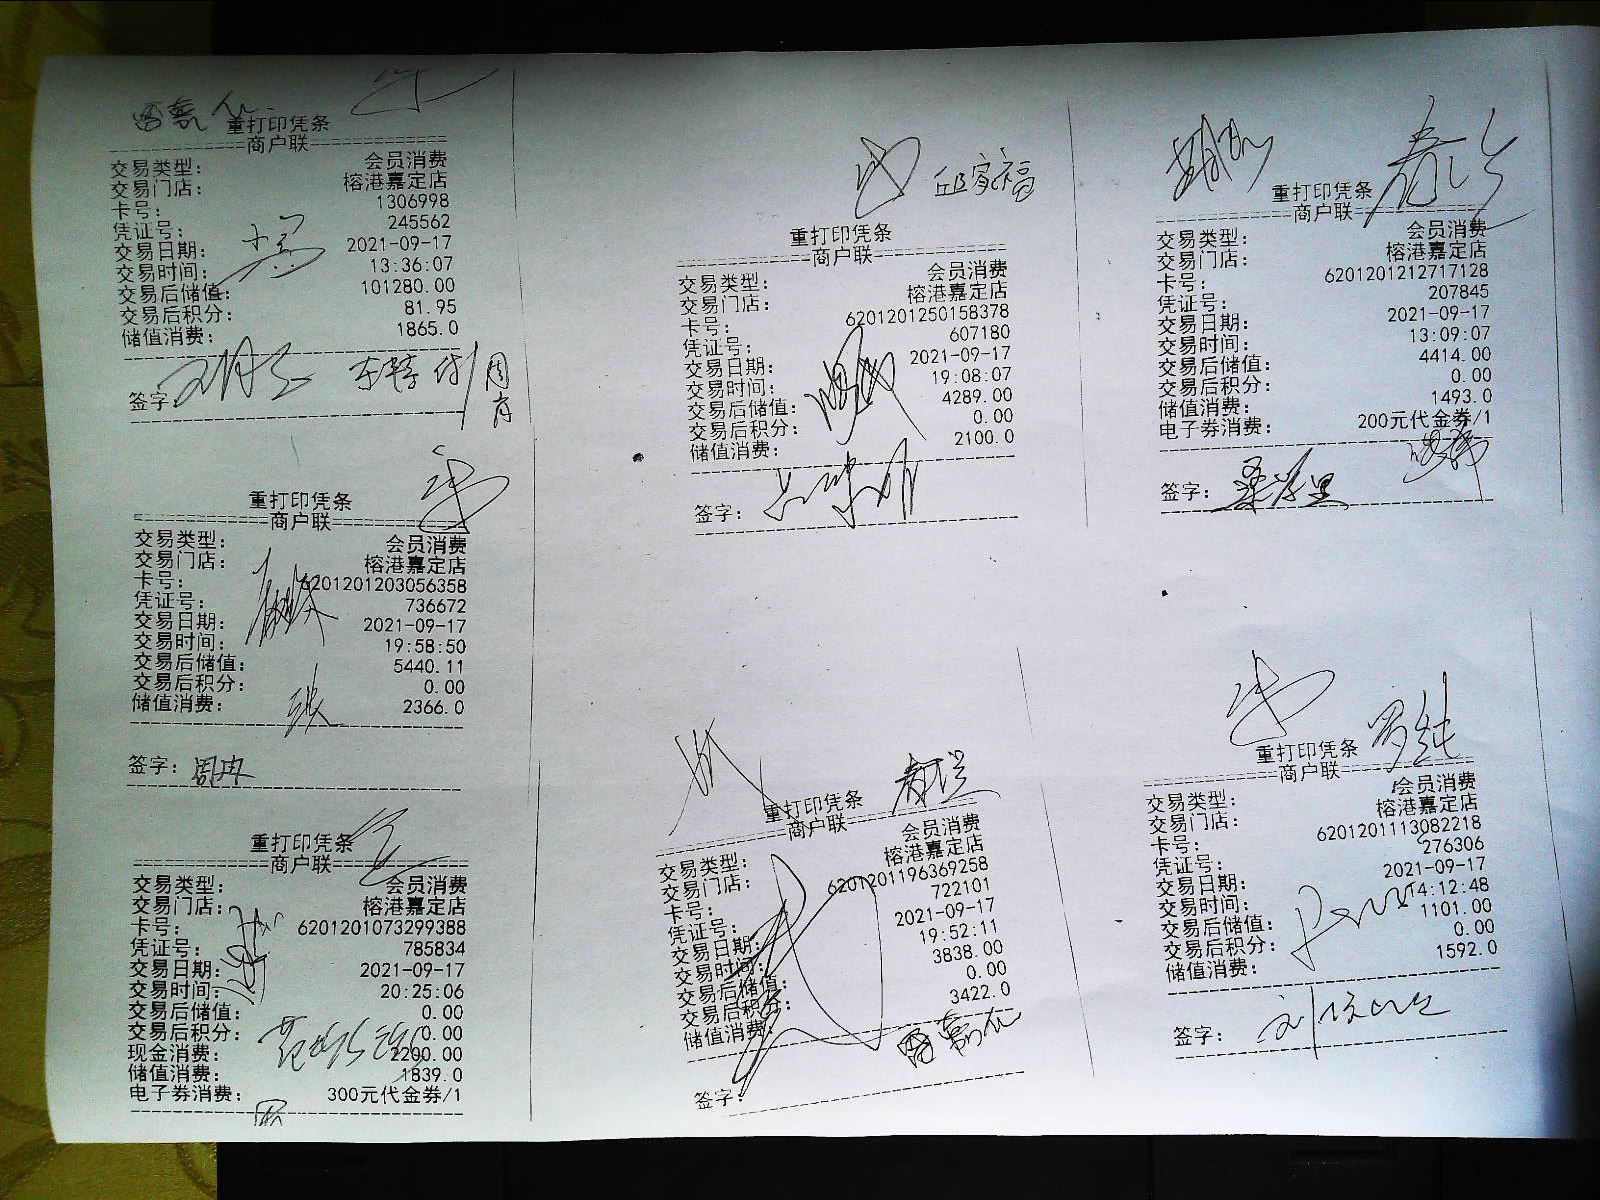 重打印凭条
商户联
交易类型: 会员消费
交易门店: 榕港嘉定店
卡号: 1306998
凭证号: 245562
交易日期: 2021-09-17
交易时间: 13:36:07
交易后储值: 101280.00
交易后积分: 81.95
储值消费: 1865.0
签字
周
重打印凭条
商户联
交易类型: 会员消费
交易门店: 榕港嘉定店
卡号: 6201201203056358
凭证号: 736672
交易日期: 2021-09-17
交易时间: 19:58:50
交易后储值: 5440.11
交易后积分: 0.00
储值消费: 2366.0
签字: 周冉
重打印凭条
商户联
交易类型: 会员消费
交易门店: 榕港嘉定店
卡号: 6201201073299388
凭证号: 785834
交易日期: 2021-09-17
交易时间: 20:25:06
交易后储值: 0.00
交易后积分: 0.00
现金消费: 2200.00
储值消费: 1839.0
电子券消费: 300元代金券/1
邱家福
重打印凭条
商户联
交易类型: 会员消费
交易门店: 榕港嘉定店
卡号: 6201201250158378
凭证号: 607180
交易日期: 2021-09-17
交易时间: 19:08:07
交易后储值: 4289.00
交易后积分: 0.00
储值消费: 2100.0
签字:
重打印凭条
商户联
交易类型: 会员消费
交易门店: 榕港嘉定店
卡号: 6201201196369258
凭证号: 722101
交易日期: 2021-09-17
交易时间: 19:52:11
交易后储值: 3838.00
交易后积分: 0.00
储值消费: 3422.0
签字:
重打印凭条
商户联
交易类型: 会员消费
交易门店: 榕港嘉定店
卡号: 6201201212717128
凭证号: 207845
交易日期: 2021-09-17
交易时间: 13:09:07
交易后储值: 4414.00
交易后积分: 0.00
储值消费: 1493.0
电子券消费: 200元代金券/1
签字:
罗纯
重打印凭条
商户联
交易类型: 会员消费
交易门店: 榕港嘉定店
卡号: 6201201113082218
凭证号: 276306
交易日期: 2021-09-17
交易时间: 14:12:48
交易后储值: 1101.00
交易后积分: 0.00
储值消费: 1592.0
签字: